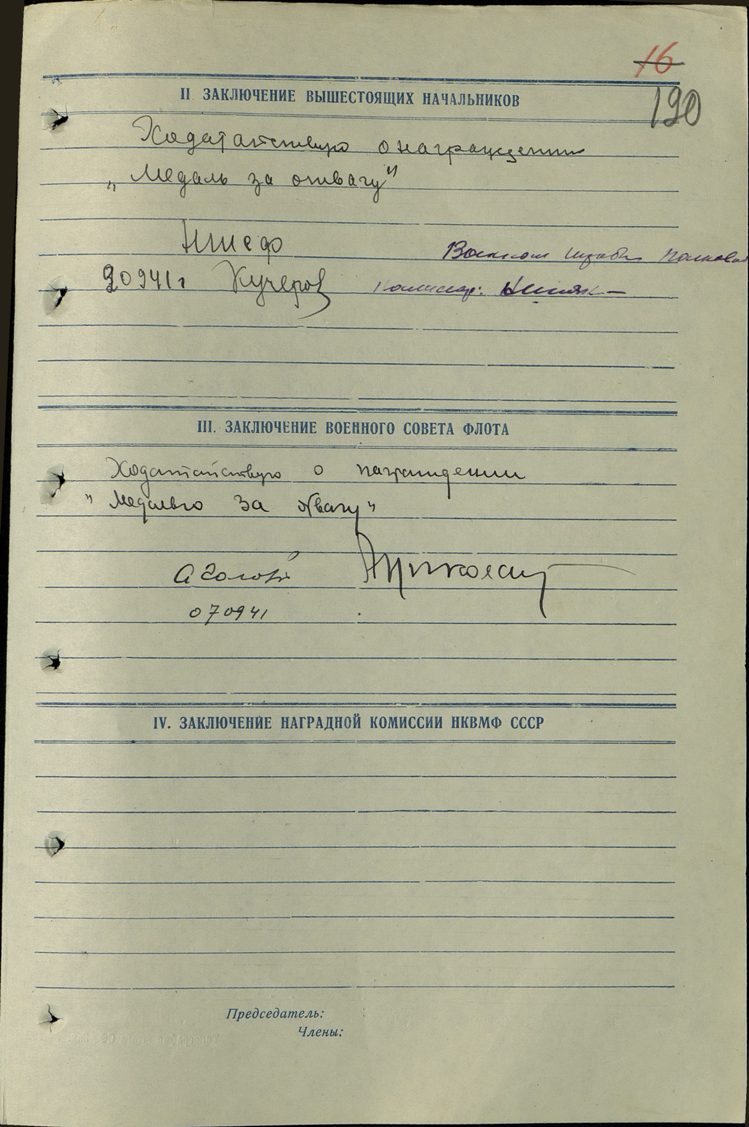 16
190
II ЗАКЛЮЧЕНИЕ ВЫШЕСТОЯЩИХ НАЧАЛЬНИКОВ
Ходатайствую о награждении
„Медаль за отвагу"
НШСФ
Кучеров
III. ЗАКЛЮЧЕНИЕ ВОЕННОГО СОВЕТА ФЛОТА
Ходатайствую о награждении
„Медалью за отвагу"
070941
IV. ЗАКЛЮЧЕНИЕ НАГРАДНОЙ КОМИССИИ НКВМФ СССР
Председатель:
Члены: